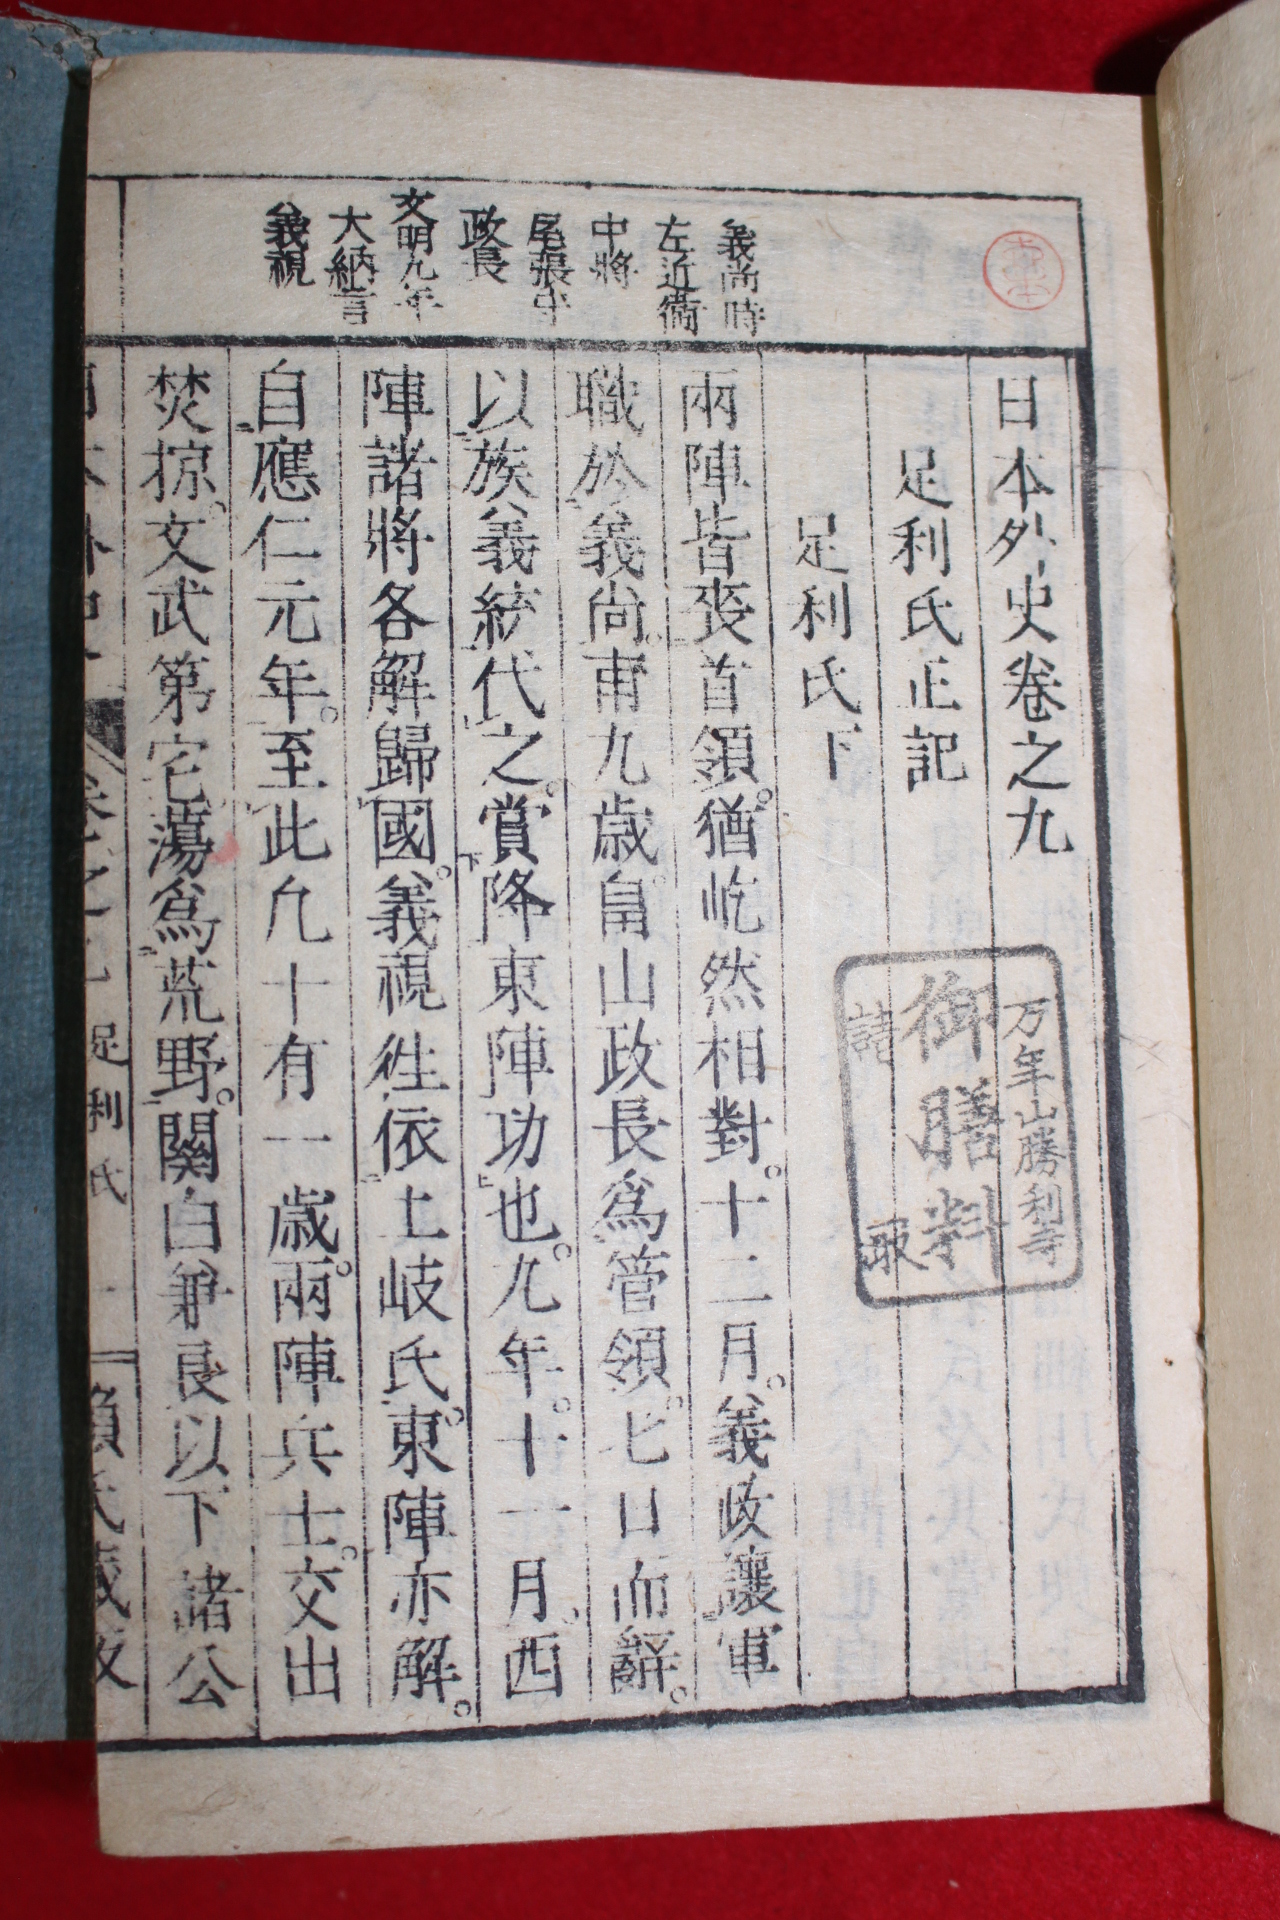 日本外史卷之九
足利氏正記
足利氏下
兩陣皆喪首領。猶屹然相對。十二月。義政讓軍
職於義尚。甫九歳。畠山政長爲管領。七日而辭。
以族義統代之。賞降東陣功也。九年。十一月。西
陣諸將各解歸國。義視徃依土岐氏。東陣亦解。
自應仁元年。至此凢十有一歳。兩陣兵士。交出
焚掠。文武第宅蕩爲荒野。關白兼良以下諸公
義尚時
左近衞
中將
尾張守
政長
文明九年
大納言
義視
万年山勝利寺
御膳料
足利氏
賴氏藏